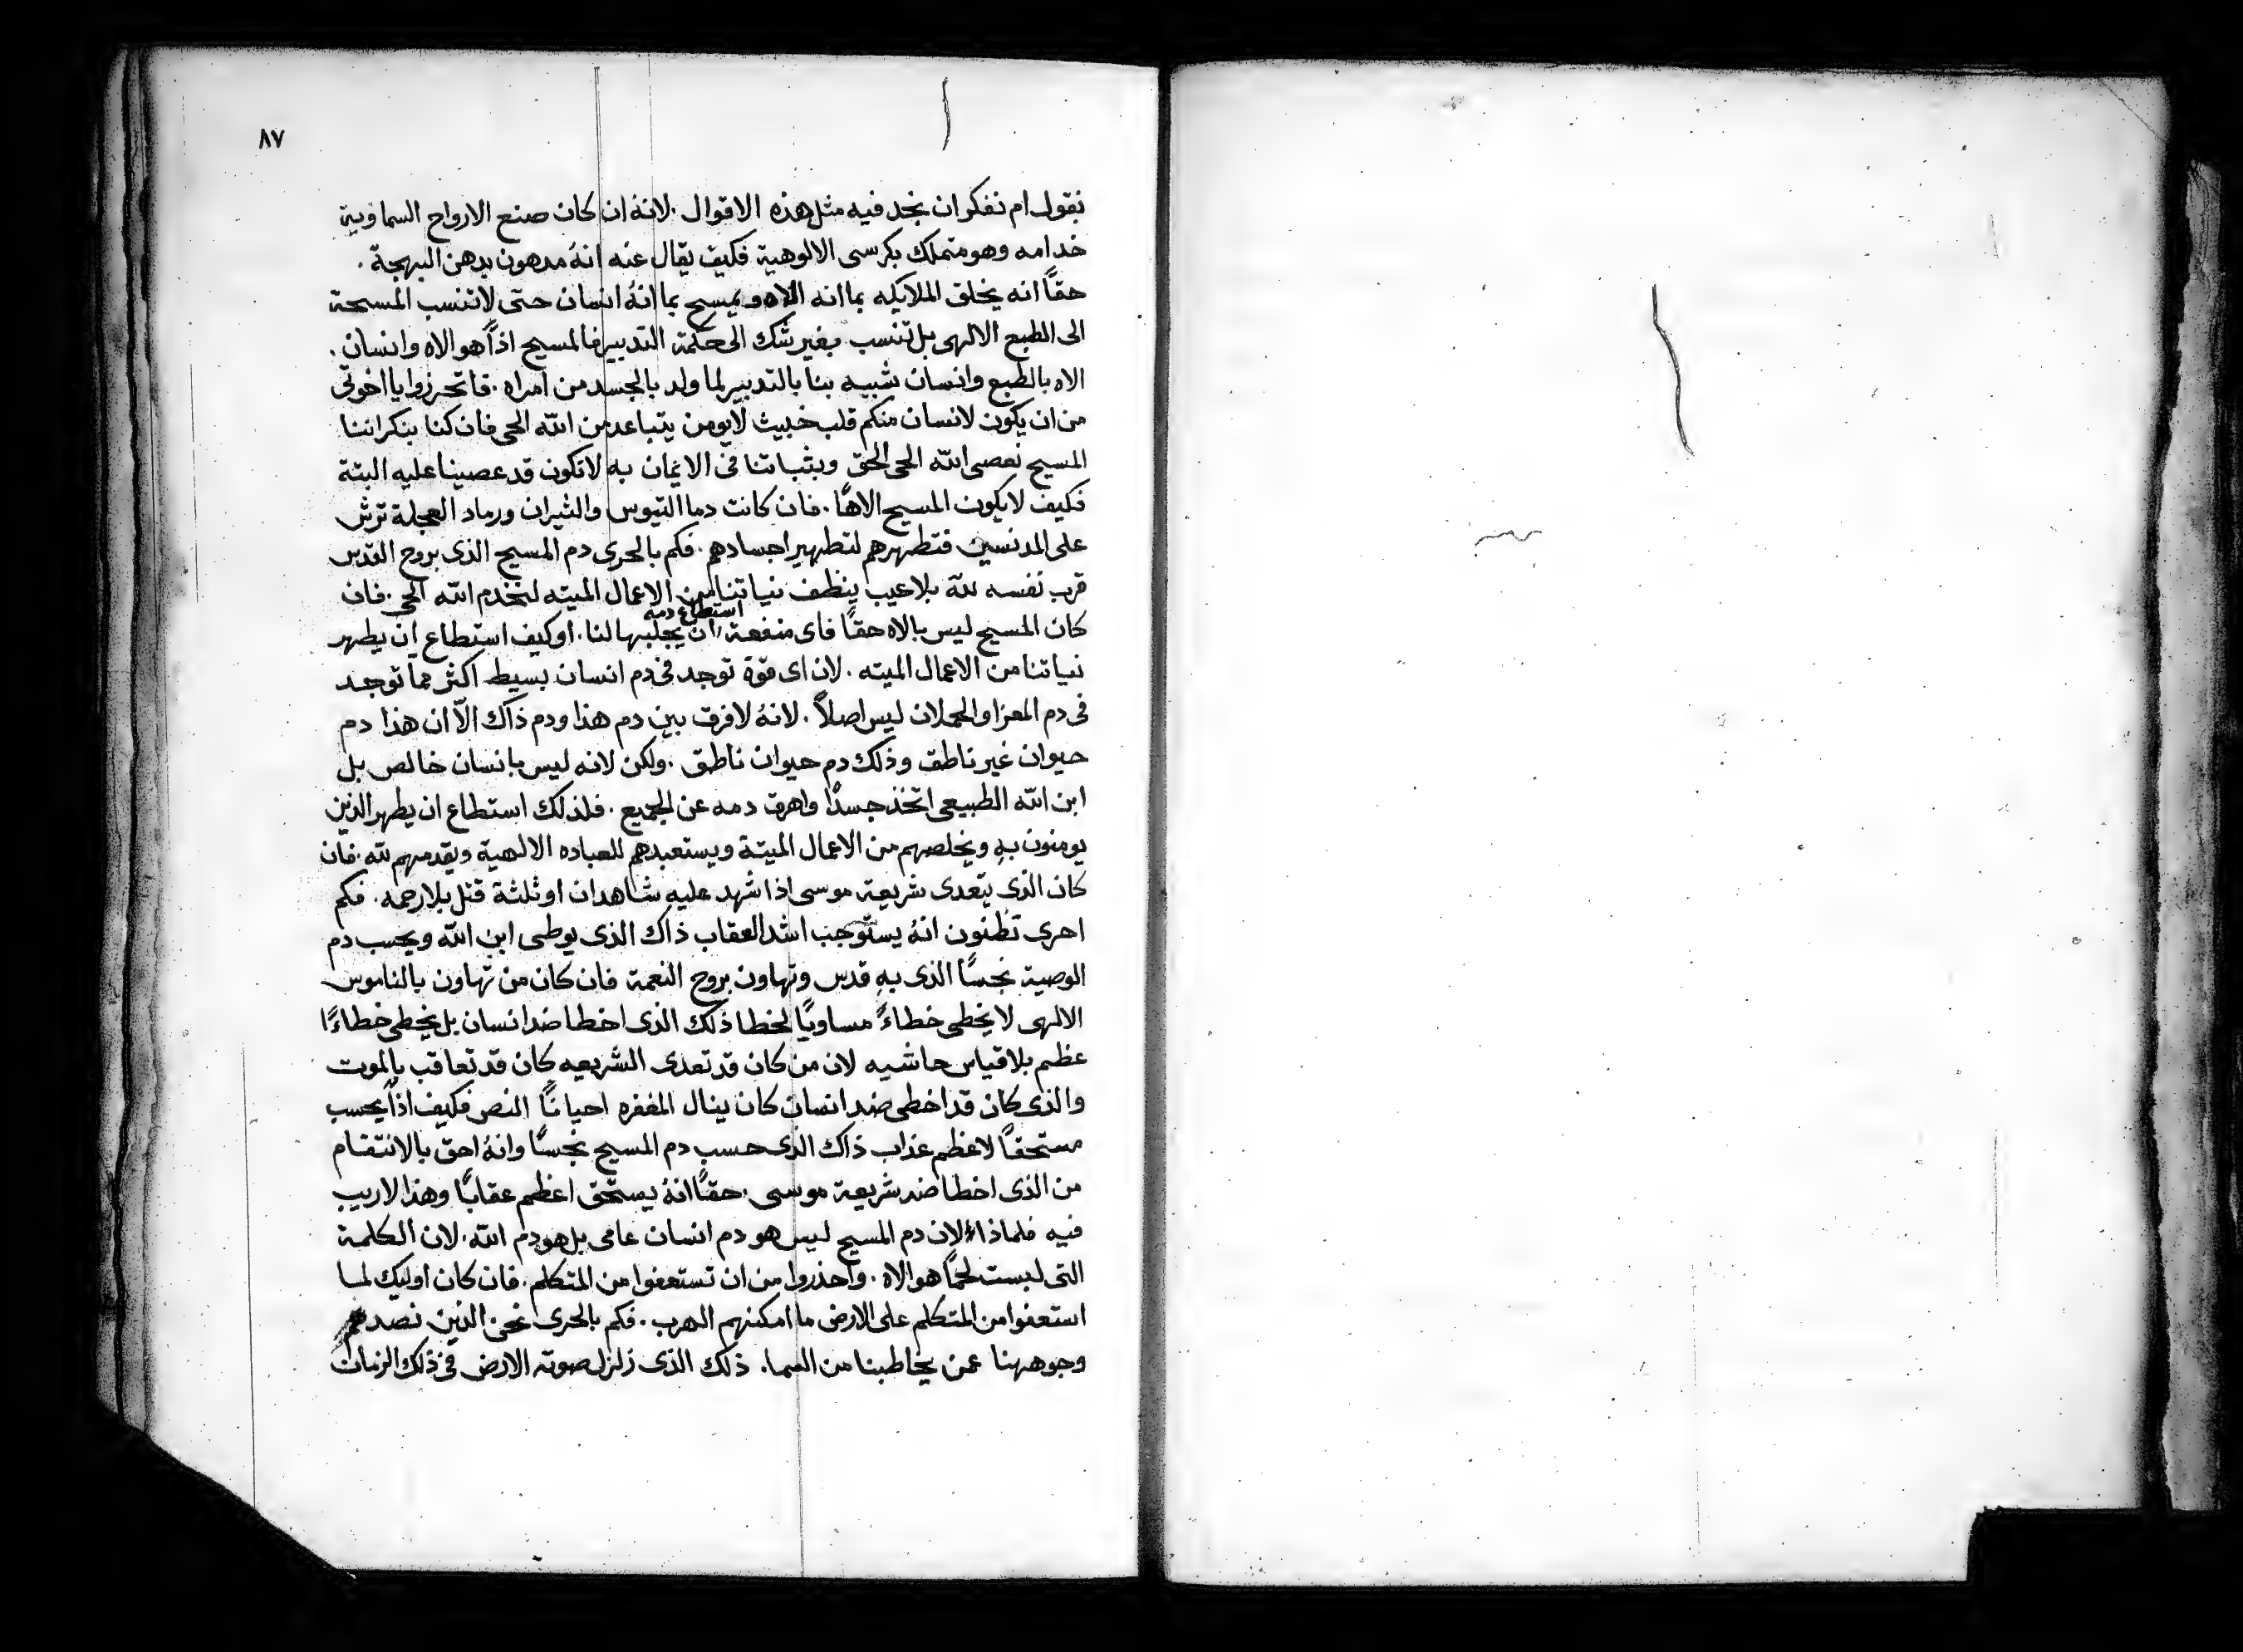 ٨٧
نقول ام نفكر ان نجد فيه مثل هذه الاقوال. لانهُ ان كان صنع الارواح السماوية
خدامه وهو متملك بكرسى الالوهية فكيف يقال عنه انهُ مدهون بدهن البهجة.
حقًا انه يخلق الملايكه بما انه الاه ويمسح بما انهُ انسان حتى لا تنسب المسحة
الى الطبع الالهى بل تنسب بغير شك الى حكمة التدبير فالمسيح اذًا هو الاه وانسان.
الاه بالطبع وانسان شبيه بنا بالتدبير لما ولد بالجسد من امراه. فاتحرزوا يا اخوتى
من ان يكون لانسان منكم قلب خبيث لا يومن يتباعد من الله الحى فان كنا بنكراننا
المسيح نعصى الله الحى الحق وبثباتنا فى الايمان به لا نكون قد عصينا عليه البتة
فكيف لا يكون المسيح الاهًا. فان كانت دما التيوس والثيران ورماد العجلة ترش
على المدنسين فتطهرهم لتطهير اجسادهم. فكم بالحرى دم المسيح الذى بروح القدس
قرب نفسه لله بلا عيب ينظف نياتنا من الاعمال الميته لنخدم الله الحى. فان
كان المسيح ليس بالاه حقًا فاى منفعة استطاع دمه ان يجلبها لنا. او كيف استطاع ان يطهر
نياتنا من الاعمال الميته. لان اى قوّة توجد فى دم انسان بسيط اكثر مما توجد
فى دم المعز او الحملان ليس اصلاً. لانهُ لا فرق بين دم هذا ودم ذاك الاّ ان هذا دم
حيوان غير ناطق وذلك دم حيوان ناطق. ولكن لانه ليس بانسان خالص بل
ابن الله الطبيعى اتخذ جسدًا واهرق دمه عن الجميع. فلذلك استطاع ان يطهر الذين
يومنون بهِ ويخلصهم من الاعمال الميتة ويستعبدهم للعباده الالهية ويقدمهم لله. فان
كان الذى يتعدى شريعة موسى اذا شهد عليهِ شاهدان او ثلثة قتل بلا رحمه. فكم
احرى تظنون انهُ يستوجب اشد العقاب ذاك الذى يوطى ابن الله ويحسب دم
الوصية نجسًا الذى بهِ قدس وتهاون بروح النعمة فان كان من تهاون بالناموس
الالهى لا يخطى خطاءً مساويًا لخطا ذلك الذى اخطا ضد انسان بل يخطى خطاءًا
عظم بلا قياس حاشيه لان من كان قد تعدى الشريعه كان قد تعاقب بالموت
والذى كان قد اخطى ضد انسان كان ينال المغفره احيانًا النص فكيف اذًا يحسب
مستحقًا لاعظم عذاب ذاك الذى حسب دم المسيح نجسًا وانهُ احق بالانتقام
من الذى اخطا ضد شريعة موسى. حقًا انهُ يستحق اعظم عقابًا وهذا لا ريب
فيه فلماذا لان دم المسيح ليس هو دم انسان عامى بل هو دم الله. لان الكلمة
التى لبست لحمًا هو الاه. واحذروا من ان تستعفوا من المتكلم. فان كان اوليك لما
استعفوا من المتكلم على الارض ما امكنهم الهرب. فكم بالحرى نحن الذين نصد
وجوهنا عمن يخاطبنا من السما. ذلك الذى زلزل صوته الارض فى ذلك الزمان